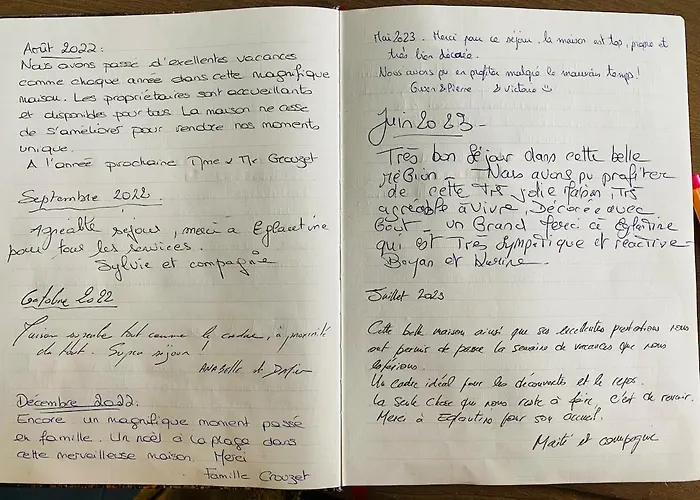 Août 2022:
Nous avons passé d'exellentes vacances
comme chaque année dans cette magnifique
maison. Les propriétaires sont accueillants
et disponibles pour tous. La maison ne cesse
de s'améliorer pour rendre nos moments
unique.
A l'année prochaine Mme & Mr Crouzet
Septembre 2022.
Agréable séjour, merci a Eglantine
pour tous les services.
Sylvie et compagnie
Octobre 2022
Maison superbe tout comme le cadre, à proximité
du tout. Super séjour !
ANABelle et
Décembre 2022:
Encore un magnifique moment passé
en famille. Un noël à la plage dans
cette merveilleuse maison. Merci
Famille Crouzet
Mai 2023. Merci pour ce séjour. la maison est top, propre et
très bien décorée.
Nous avons pu en profiter malgré le mauvais temps!
Gwen & Pierre & Victoire
Juin 2023-
Très bon séjour dans cette belle
région - Nous avons pu profiter
de cette très jolie maison, très
agréable à vivre, Décorée avec
Goût - un Grand Merci à Eglantine
qui est très sympatique et réactive-
Boyan et
Juillet 2023
Cette belle maison ainsi que ses excellentes prestations nous
ont permis de passe la semaine de vacances que nous
espérions.
Un cadre idéal pour les découvertes et le repos.
La seule chose qui nous reste à faire, c'est de revenir.
Merci à Eglantine pour son accueil.
Maité et compagnie